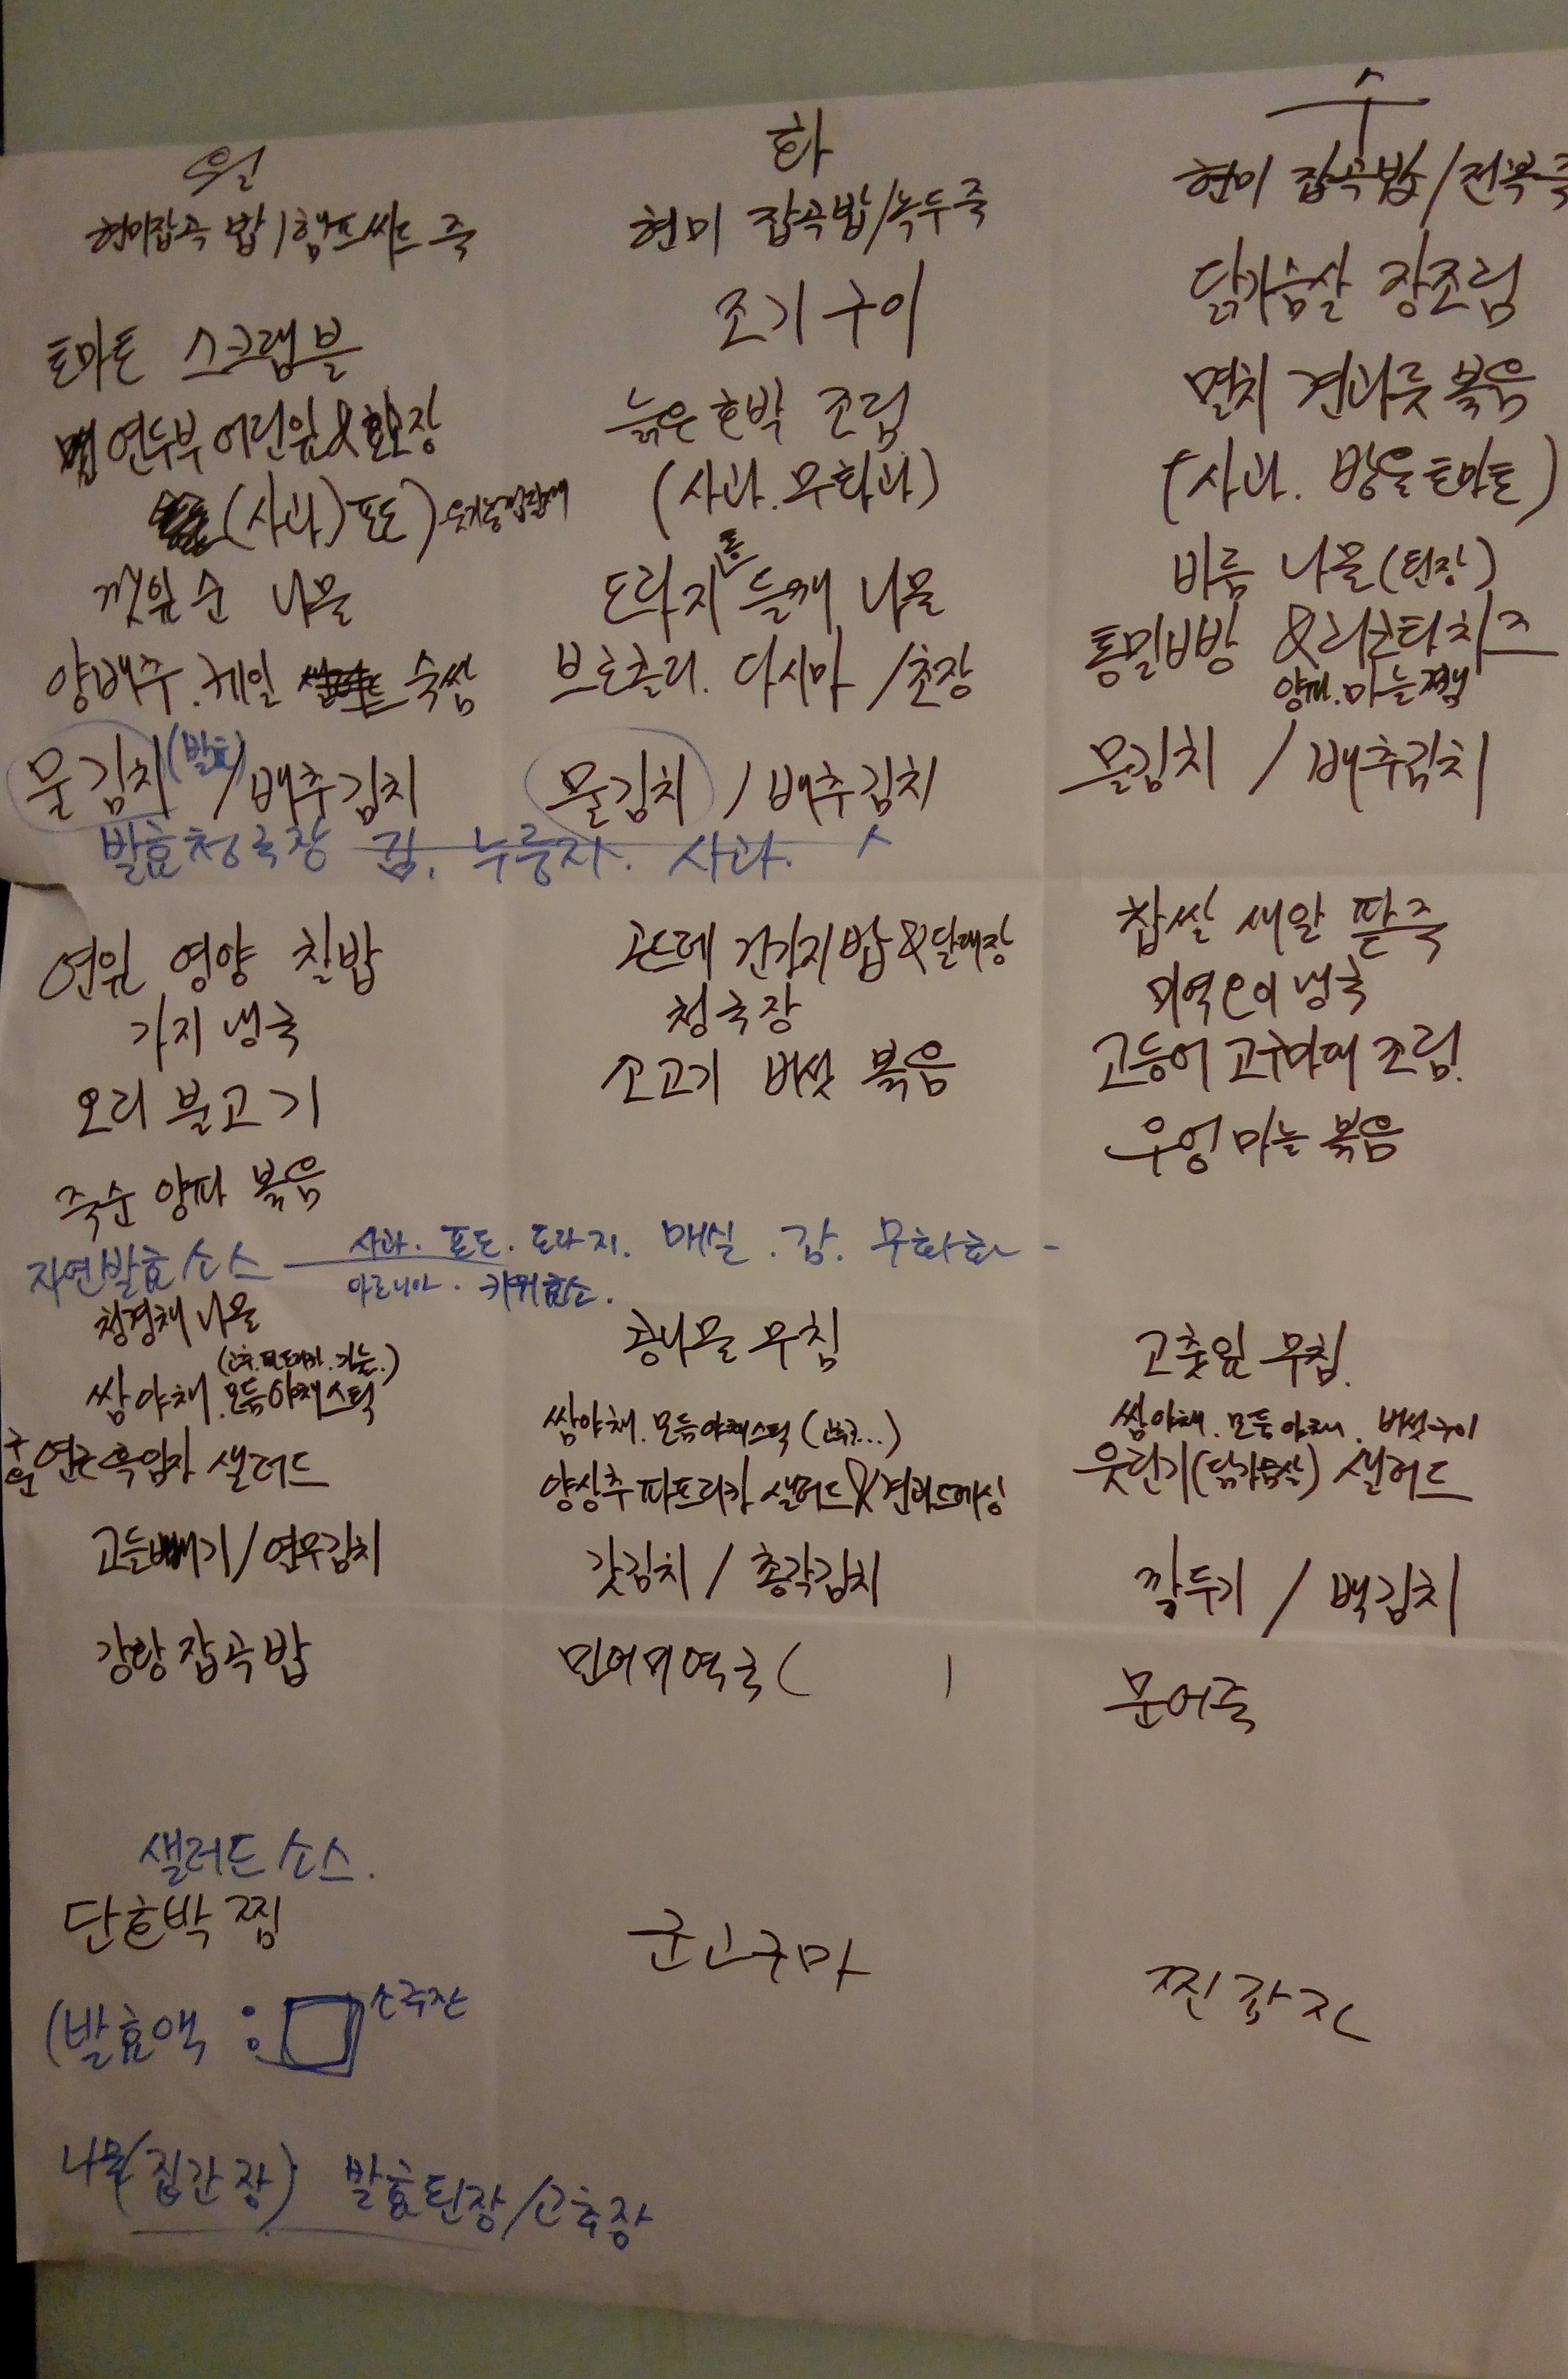 월
현미잡곡 밥/햄프씨드 죽
토마토 스크램블
연두부 어린잎&효모장
(사과) 포도)
깻잎순 나물
양배추.케일 숙쌈
물김치(발효)/배추김치
화
현미 잡곡밥/녹두죽
조기구이
늙은호박 조림
(사과.무화과)
도라지 들깨 나물
브로콜리. 다시마/초장
물김치/배추김치
수
현미 잡곡밥/전복죽
닭가슴살 장조림
멸치 견과류 볶음
(사과. 방울토마토)
비름 나물(된장)
통밀빵 &리코타치즈
양파.마늘잼
물김치/배추김치
발효청국장 김. 누룽지. 사과.
연잎 영양 찰밥
가지냉국
오리 불고기
죽순 양파 볶음
곤드레 곤가지밥&달래장
청국장
소고기 버섯 볶음
찹쌀 새알 팥죽
미역오이냉국
고등어 고구마대 조림.
우엉마늘볶음
자연발효소스 사과. 포도. 도라지. 매실. 감. 무화과
아로니아. 키위효소.
청경채나물
쌈야채.모듬야채스틱
연근흑임자 샐러드
고들빼기/연무김치
콩나물 무침
쌈야채.모듬야채스틱(고추...)
양상추파프리카 샐러드&견과드레싱
갓김치/총각김치
고춧잎 무침.
쌈야채.모듬야채.버섯구이
웃란기(닭가슴살) 샐러드
깍두기/백김치
강황잡곡밥
민어미역국( )
문어죽
샐러드소스.
단호박찜
군고구마
찐감자
(발효액 : 소주잔
나물(집간장) 발효된장/고추장